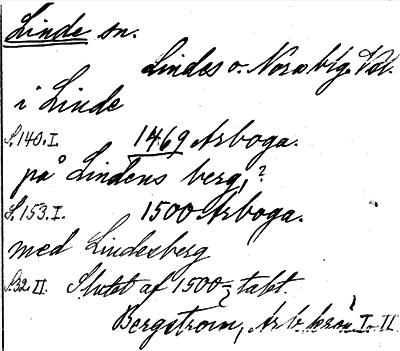 Linde sn.
Lindes o. Nora blg. Vstl.
i Linde
S. 140. I. 1469 Arboga.
på Lindens berg, ?
S. 153. I. 1500 Arboga.
med Lindesberg
S. 32 II. Slutet af 1500-talet.
Bergström, Arb. krön. I-II